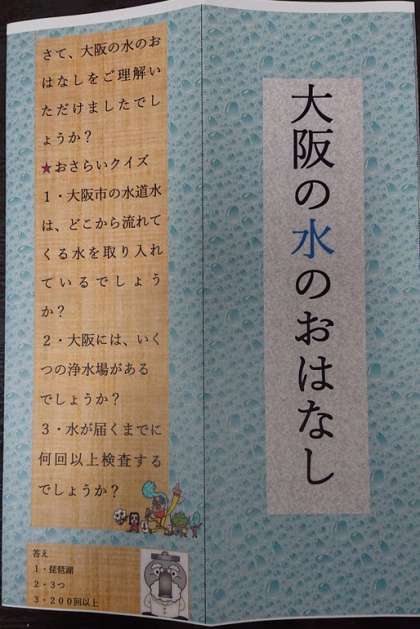 大阪の水のおはなし
さて、大阪の水のお
はなしをご理解い
ただけましたでし
ょうか？
★おさらいクイズ
１・大阪市の水道水
は、どこから流れて
くる水を取り入れ
ているでしょう
か？
２・大阪には、いく
つの浄水場がある
でしょうか？
３・水が届くまでに
何回以上検査する
でしょうか？
答え
１・琵琶湖
２・３つ
３・２００回以上